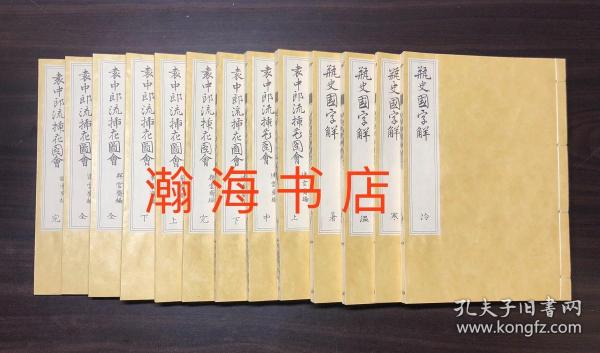 瓶史國字解
冷
瓶史國字解
寒
瓶史國字解
温
瓶史國字解
暑
袁中郎流挿花圖會
上
袁中郎流挿花圖會
中
袁中郎流挿花圖會
下
袁中郎流挿花圖會
完
袁中郎流挿花圖會
上
袁中郎流挿花圖會
下
袁中郎流挿花圖會
全
袁中郎流挿花圖會
全
袁中郎流挿花圖會
完
瀚海书店
孔夫子旧书网
www.kongfz.com